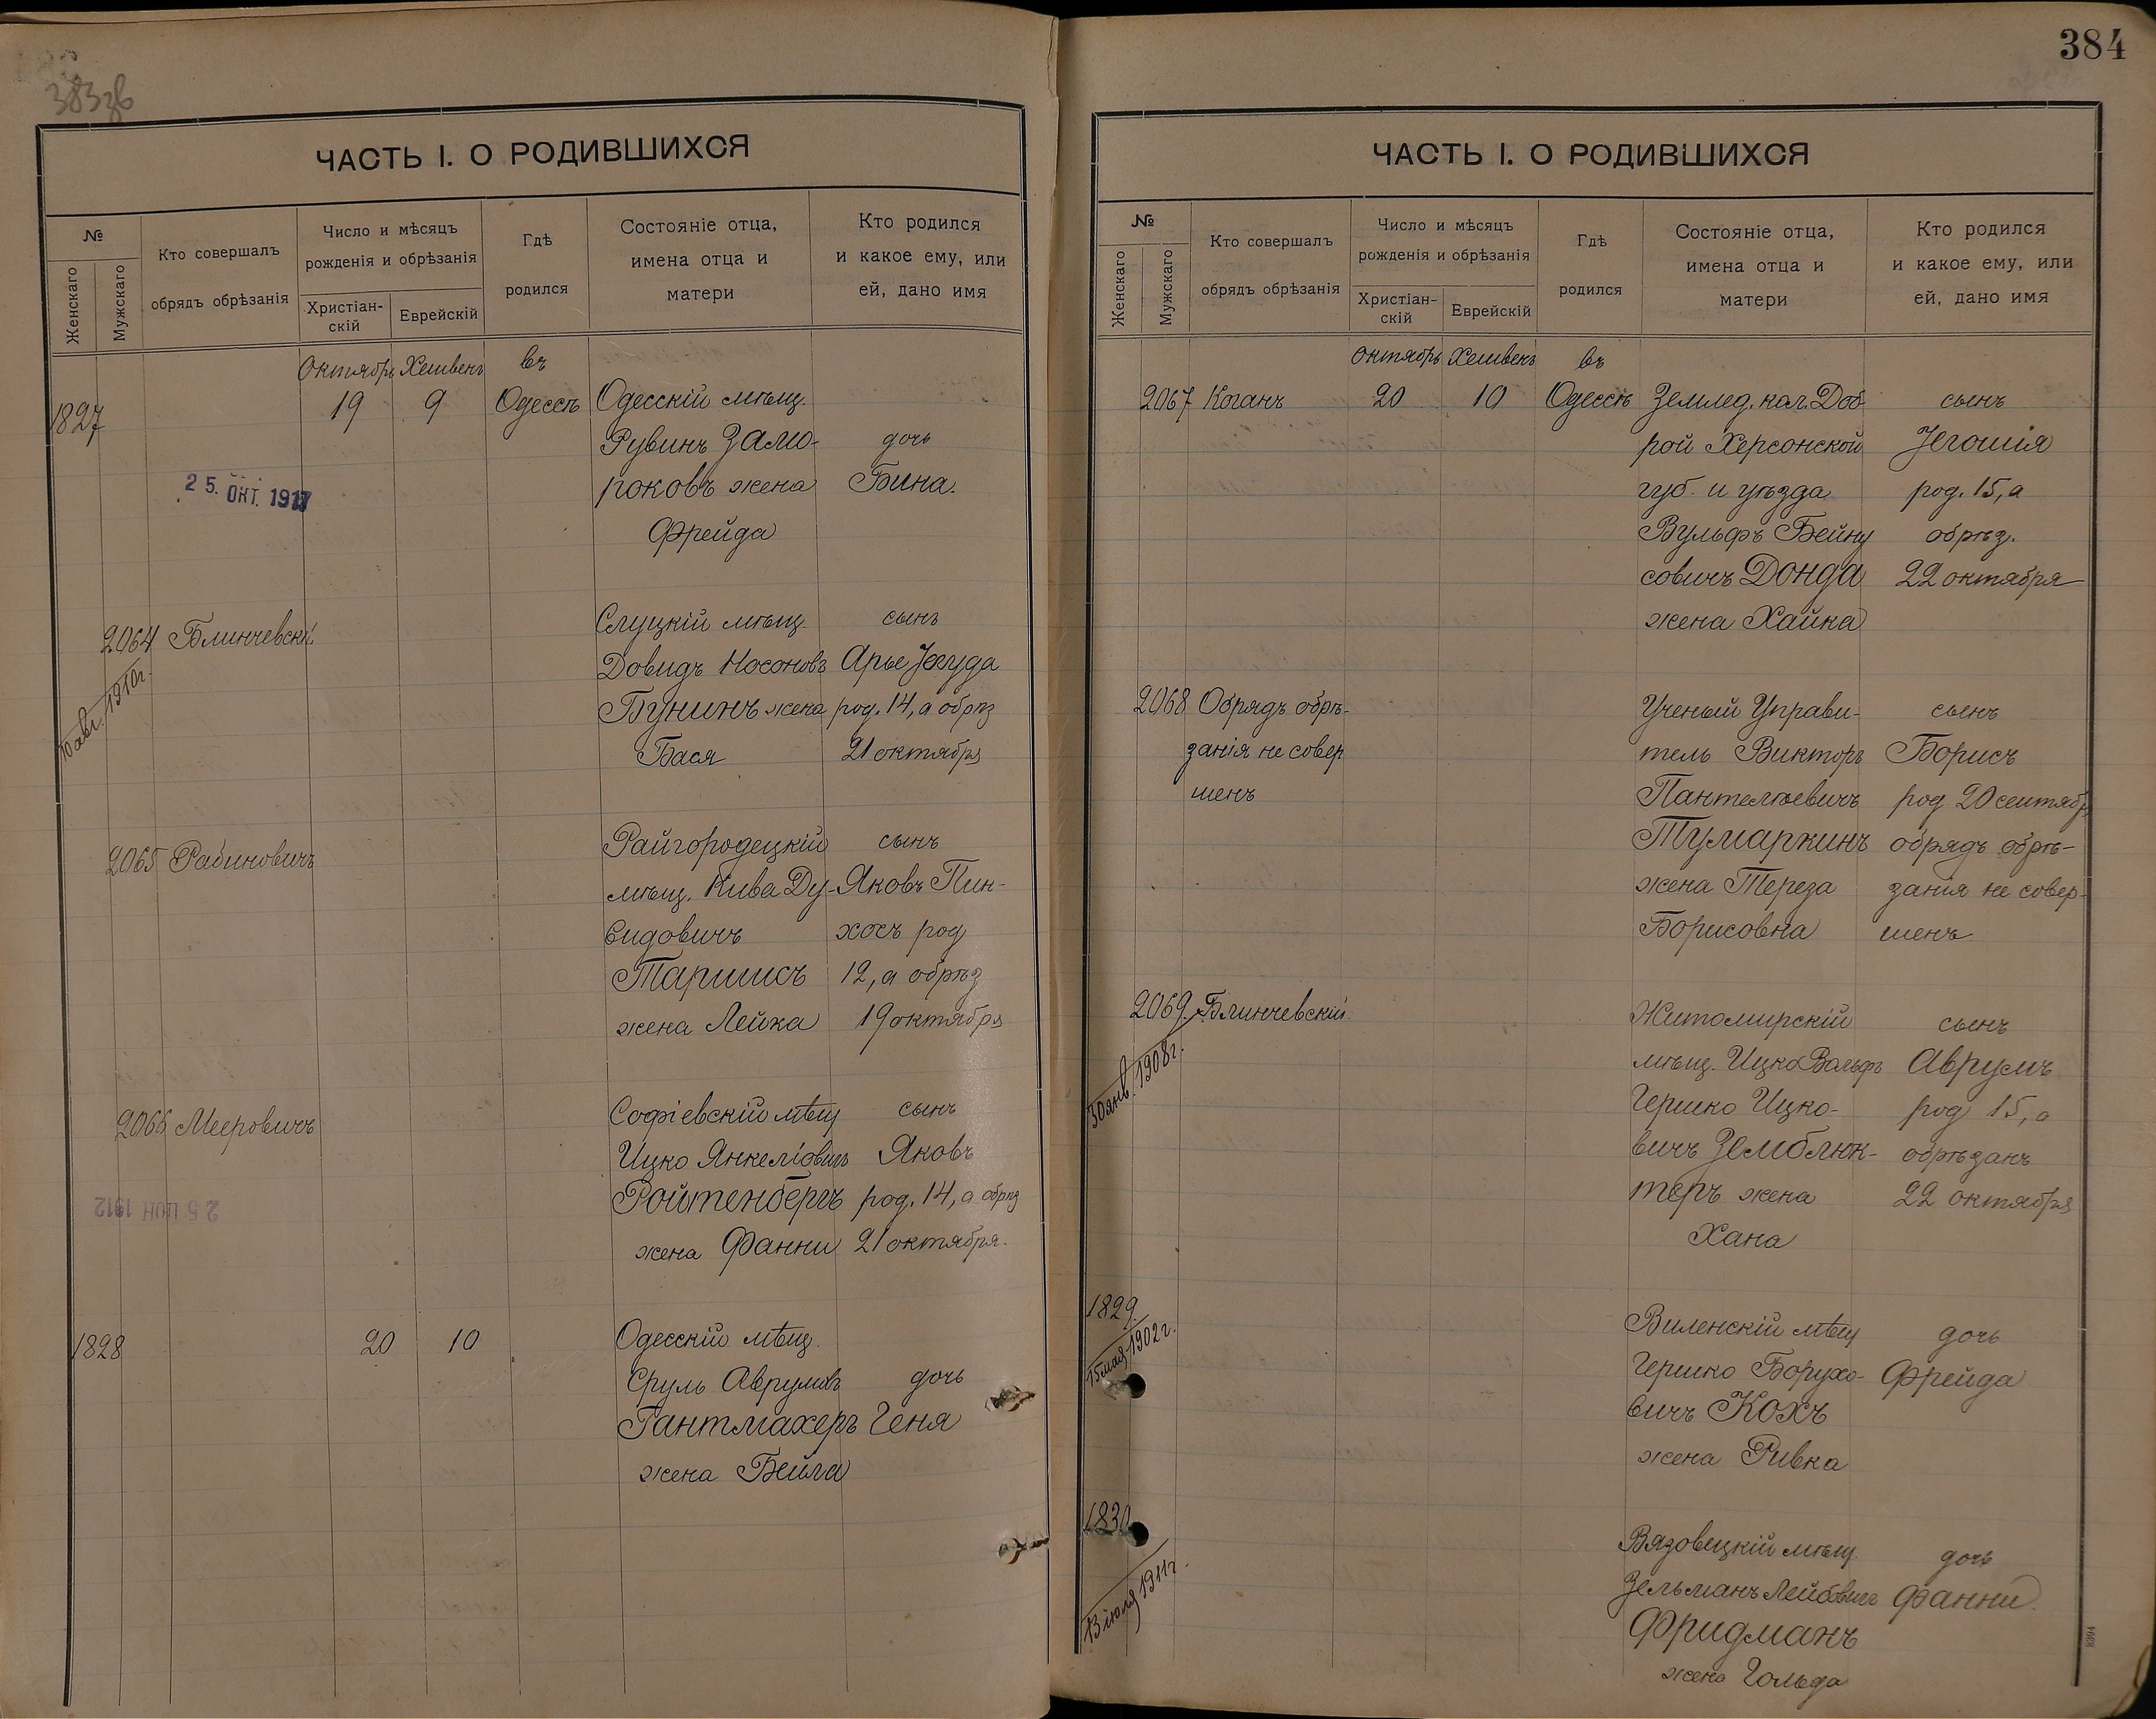 383зв
ЧАСТЬ I. О РОДИВШИХСЯ
№
Женскаго
Мужскаго
Кто совершалъ
обрядъ обрѣзанія
Число и мѣсяцъ
рожденія и обрѣзанія
Христіан-
скій
Еврейскій
Гдѣ
родился
Состояніе отца,
имена отца и
матери
Кто родился
и какое ему, или
ей, дано имя
Октябрь Хешвенъ въ
1827 19 9 Одессѣ Одесскій мѣщ.
Рувинъ Замо- дочь
роковъ жена Бина.
25. ОКТ. 1917
Фрейда
Слуцкій мѣщ. сынъ
2064 Блинчевскій
Довидъ Носоновъ Арье Іегуда
10 авг. 1910 г.
Бунинъ жена род. 14, а обрѣз
Бася 21 октября
Райгородецкій сынъ
2065 Рабиновичъ
мѣщ. Кива Ду- Яковъ Пин-
видовичъ хосъ род
Таршисъ 12, а обрѣз
жена Лейка 19 октября
Софіевскій мѣщ сынъ
2066 Мееровичъ
Ицко Янкеліовичъ Яковъ
Ройтенбергъ род. 14, а обрѣз
25 ІЮН 1912
жена Фанни 21 октября.
1828 20 10 Одесскій мѣщ.
Сруль Аврумовъ дочь
Гантмахеръ Геня
жена Бейла
384
ЧАСТЬ I. О РОДИВШИХСЯ
№
Женскаго
Мужскаго
Кто совершалъ
обрядъ обрѣзанія
Число и мѣсяцъ
рожденія и обрѣзанія
Христіан-
скій
Еврейскій
Гдѣ
родился
Состояніе отца,
имена отца и
матери
Кто родился
и какое ему, или
ей, дано имя
Октябрь Хешвенъ въ
2067 Коганъ 20 10 Одессѣ Землед. кол. Доб- сынъ
рой Херсонской Іегошія
губ. и уѣзда род. 15, а
Вульфъ Бейну обрѣз.
совичъ Донда 22 октября
жена Хайка
2068 Обрядъ обрѣ- Ученый Управи- сынъ
занія не совер тель Викторъ Борисъ
шенъ Пантелѣевичъ род 20 сентябр
Тумаркинъ обрядъ обрѣ-
жена Тереза занія не совер-
Борисовна шенъ
2069. Блинчевскій. Житомирскій сынъ
мѣщ. Ицко Вольфъ Аврумъ
30 янв. 1908 г.
Гершко Ицко- род 15, а
вичъЗемблюк- обрѣзанъ
теръ жена 22 октября
Хана
1829. Виленскій мѣщ дочь
15 мая 1902 г.
Гершко Борухо- Фрейда
вичъ Кохъ
жена Ривка
1830 Вязовецкій мѣщ. дочь
Зельманъ Лейбовичъ Фанни.
13 іюля 1911 г.
Фридманъ
жена Гольда